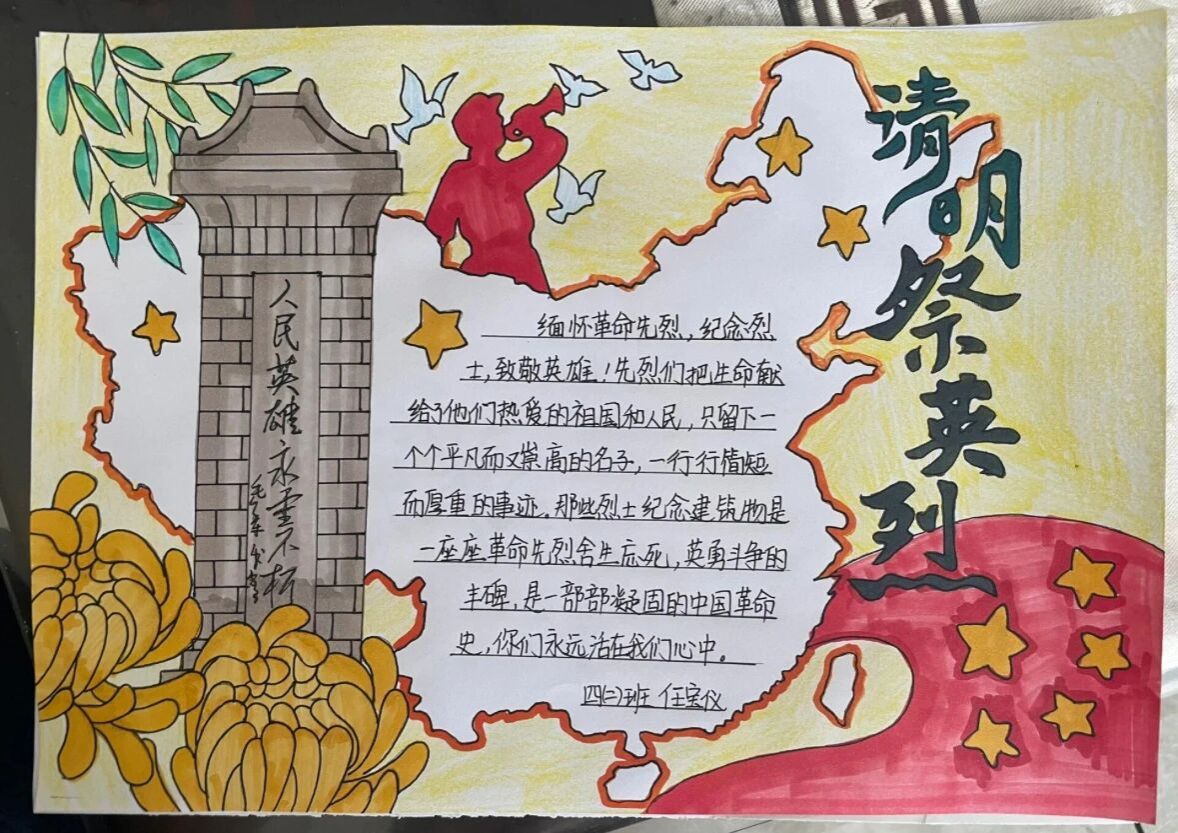 清明祭英烈
人民英雄永垂不朽
缅怀革命先烈，纪念烈
士，致敬英雄！先烈们把生命献
给了他们热爱的祖国和人民，只留下一
个个平凡而又崇高的名子，一行行简短
而厚重的事迹。那些烈士纪念建筑物是
一座座革命先烈舍生忘死，英勇斗争的
丰碑，是一部部凝固的中国革命
史，你们永远活在我们心中。
四（二）班 任宝仪